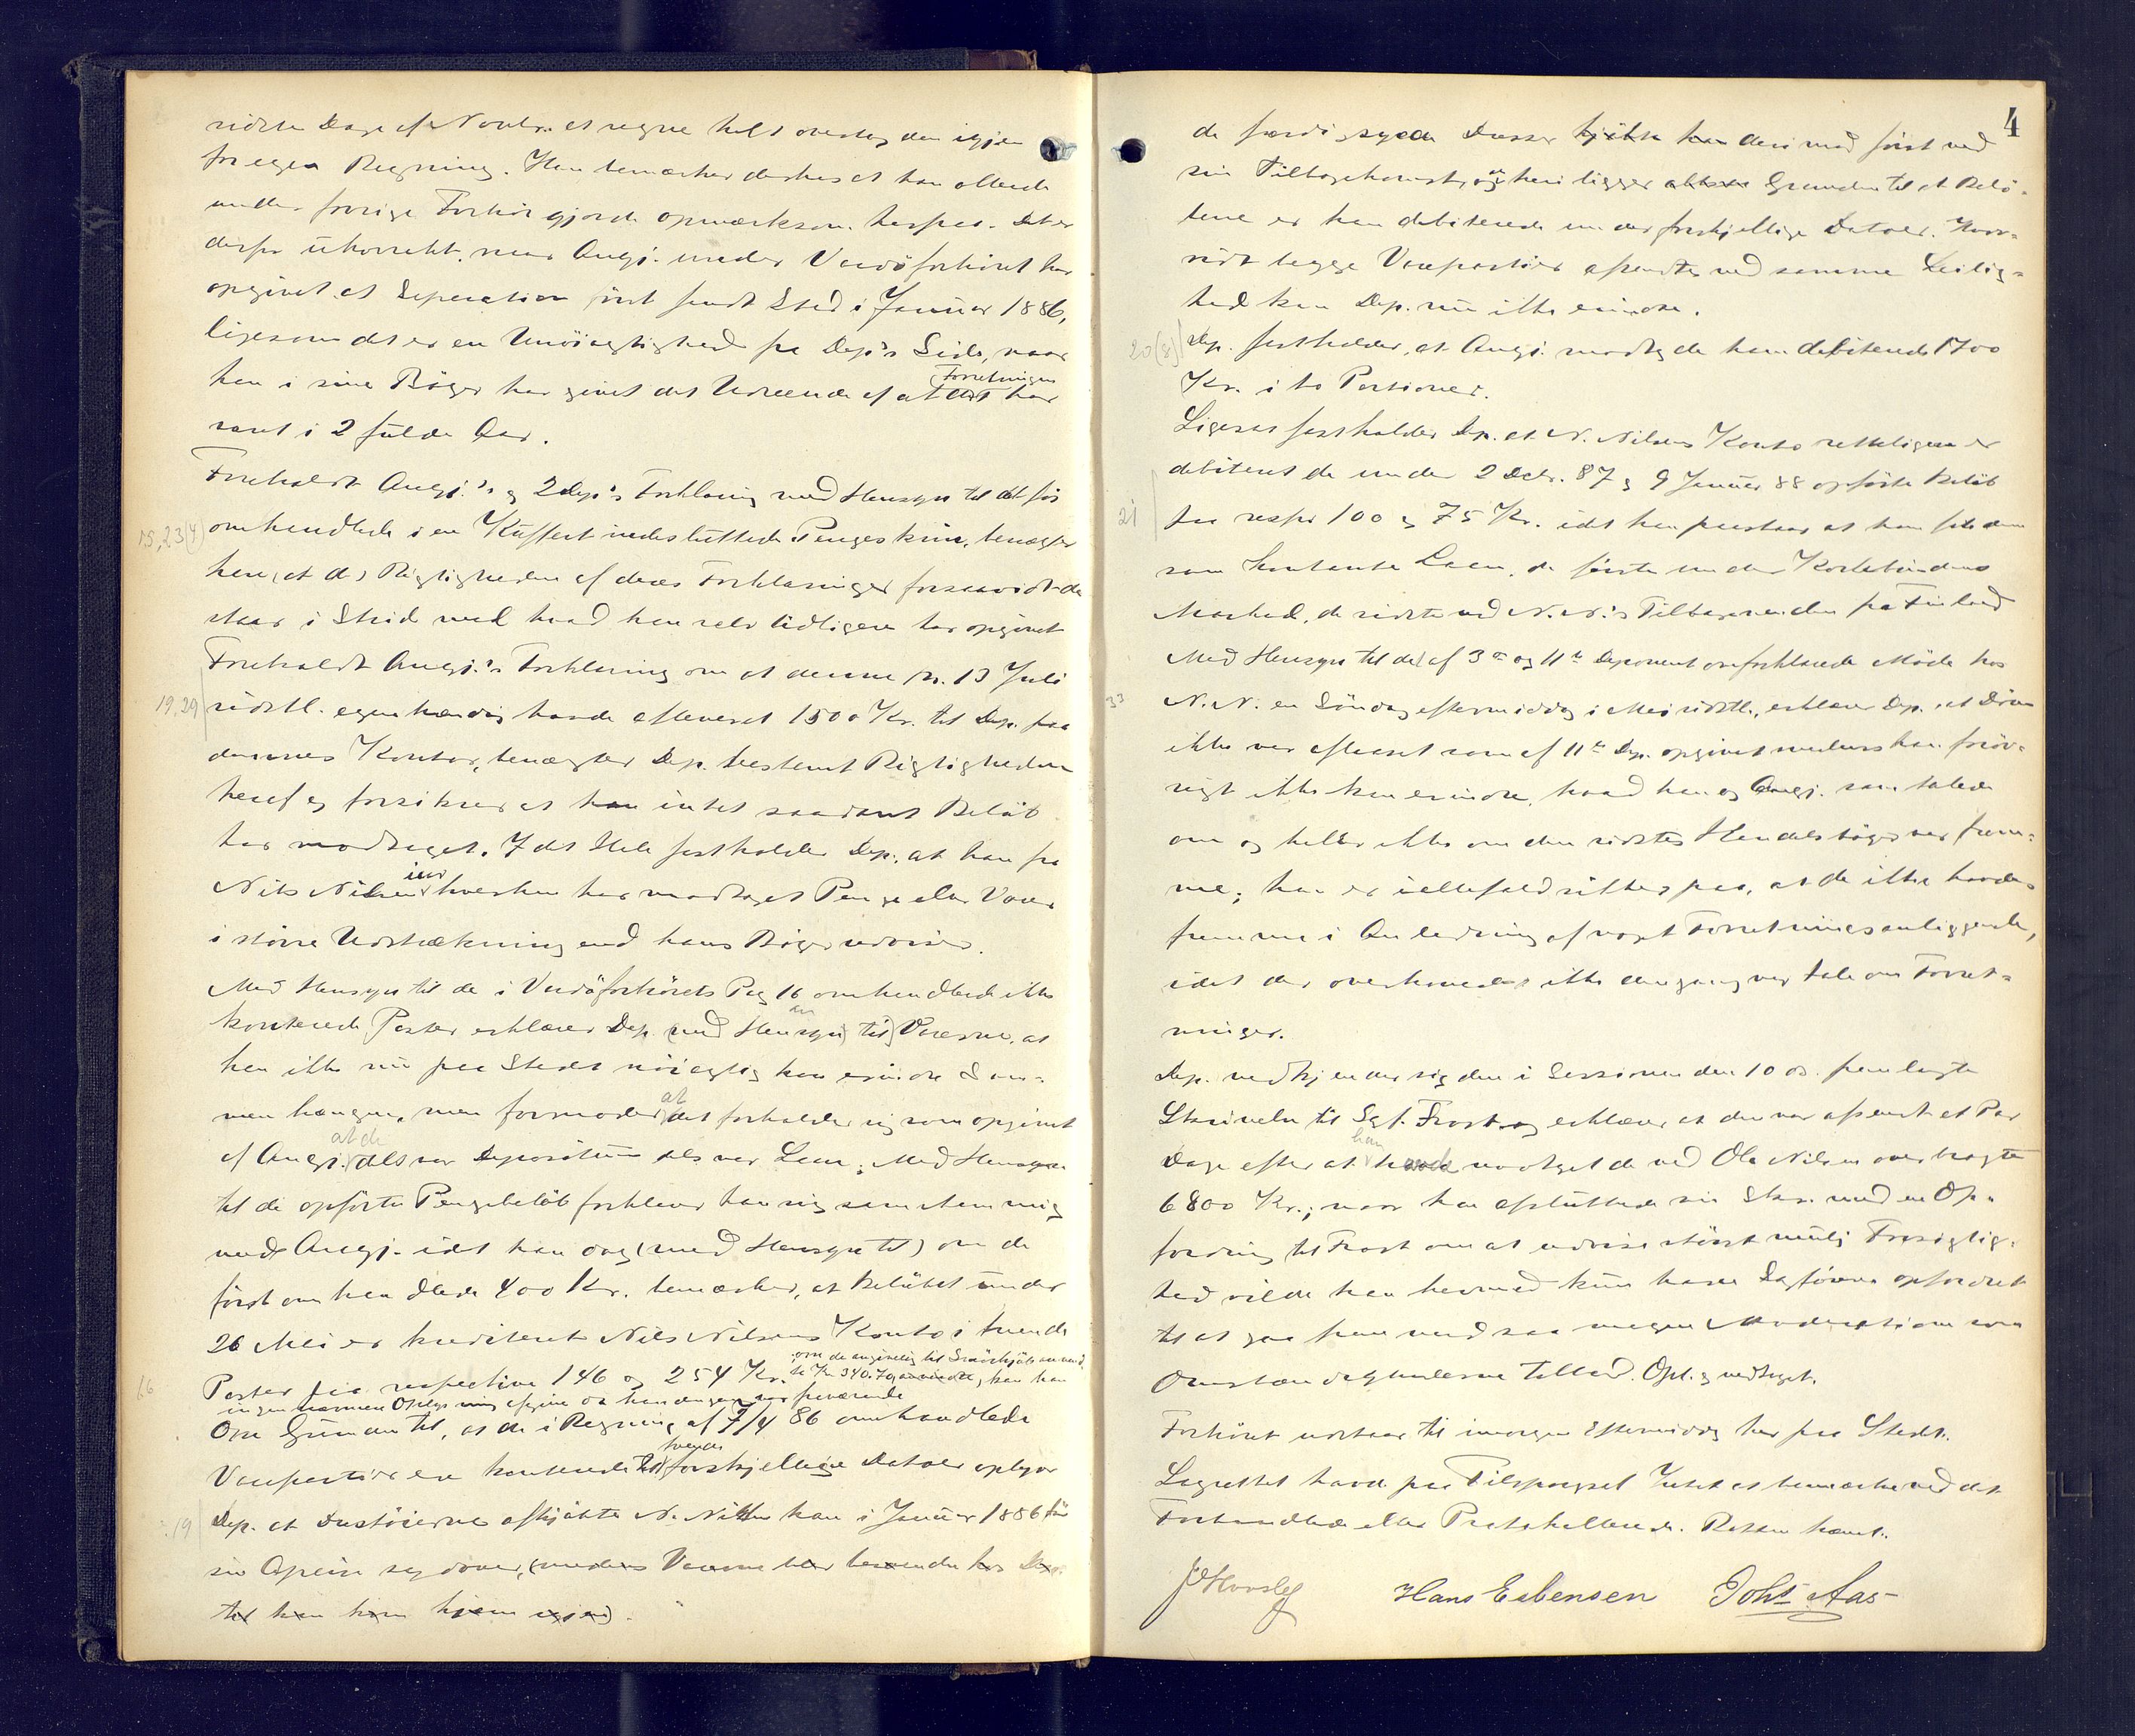 sidste Dage af Novbr. at regne helt overtog den igjen
for egen Regning. Han bemærker derhos at han allerede
under forrige Forhør gjorde opmærksom herpaa. Det er
derfor ukorrekt, naar Angj. under Vardøforhøret har
opgivet at Seperation først fandt Sted i Januar 1886,
ligesom det er en Unøiagtighed fra Dep's Side, naar
han i sine Bøger har givet det Udseende af at Forretningen har
varet i 2 fulde Aar.
Foreholdt Angj.'s og 2 Dep's Forklaring med Hensyn til det før
15,23(4) omhandlede i en Kuffert indesluttede Pengeskrin, benægter
han, at de Rigtigheden af deres Forklaringer forsaavidt de
staar i Strid med hvad han selv tidligere har opgivet
Foreholdt Angj.'s Forklaring om at denne pr. 13 Juli
19,29 sidstl. egenhændig havde afleveret 1500 Kr. til Dep. paa
dennes Kontor, benægter Dep. bestemt Rigtigheden
heraf og forsikrer at han intet saadant Beløb
har modtaget. I det Hele fastholder Dep., at han fra
Nils Nilsen hverken har modtaget Penge eller Varer
i større Udstrækning end hans Bøger udviser.
Med Hensyn til de i Vardøforhørets Pag 16 omhandlede ikke
konterede Poster erklærer Dep. med Hensyn til Varerne, at
han ikke nu paa Stedet nøiagtig kan erindre Sam-
menhængen, men formoder at det forholder sig som opgivet
af Angj. at de dels var Depositum dels var Laan; Med Hensyn
til de opførte Pengebeløb forklarer han sig samstemmig
med Angj. idet han og (med Hensyn til) om de
først omhandlede 400 Kr. bemærker, at Beløbet under
26 Mai er krediteret Nils Nilsens Konto i tvende
16 Poster paa respektive 146 og 254 Kr. om de angivelig til Smørkjøb anvend-
te Kr. 340.70 kan han
ingen nærmere Oplysning afgive da han dengang var fraværende
Om Grunden til, at de i Regning af 7/4 86 omhandlede
Varepartier er konterede tvende forskjellige Datoer oplyser
19 Dep. at Dustøierne afkjøbte N. Nilsen han i Januar 1886 før
sin Afreise sydover, (medens Varerne blev beroende hos Dep.
til han kom hjem igjen).
4
de færdigsyede Dusser kjøbte han derimod først ved
sin Tilbagekomst, og heri ligger altsaa Grunden til at Belø-
bene er ham debiterede under forskjellige Datoer. Hvor-
vidt begge Varepartier afsendtes ved samme Leilig-
hed kan Dep. nu ikke erindre.
20(8) Dep. fastholder, at Angj. modtog de ham debiterede 1700
Kr. i to Portioner.
Ligesaa fastholder Dep. at N. Nilsens Konto retteligen er
debiteret de under 2 Dcbr. 87 og 9 Januar 88 opførte Beløb
21 paa respv 100 og 75 Kr. idet han paastaar at han fik dem
som kontante Laan, de første under Kortebundens
Marked, de sidste ved N. N.'s Tilbagevenden fra Finland
Med Hensyn til det af 3de og 11te Deponent omforklarede Møde hos
33 N. N. en Søndag eftermiddag i Mai sidstl., erklærer Dep. at Døren
ikke var aflaaset som af 11te Dep. opgivet medens han forøv-
rigt ikke kan erindre, hvad han og Angj. samtalede
om og heller ikke om den sidstes Handelsbøger var frem-
me; han er iallefald sikker paa, at de ikke havdes
fremme i Anledning af noget Forretningsanliggende,
idet der overhovedet ikke dengang var tale om Forret-
ninger.
Dep. vedkjender sig den i Sessionen den 10 ds. fremlagte
Skrivelse til Sgf. Frost og erklærer at den var afsendt et Par
Dage efter at han havde modtaget de ved Ole Nilsen overbragte
6800 Kr.; naar han afsluttede sin Skr. med en Op-
fordring til Frost om at udvise størst mulig Forsigtig-
hed vilde han hermed kun have Sagføreren opfordret
til at gaa frem med saa megen Moderation som
Omstændighederne tillod. Opl. og vedtaget.
Forhøret udstaar til imorgen Eftermiddag her paa Stedet.
Lagrettet havde paa Tilspørgsel Intet at bemærke ved det
Forhandlede eller Protokollerede. Retten hævet.
Hans Esbensen Johs Aas